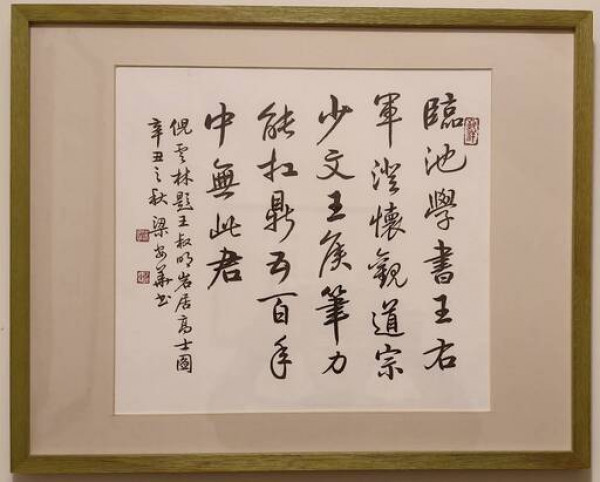 臨池學書王右
軍澄懷觀道宗
少文王侯筆力
能扛鼎五百年
中無此君
倪雲林題王叔明岩居高士圖
辛丑之秋梁安華書